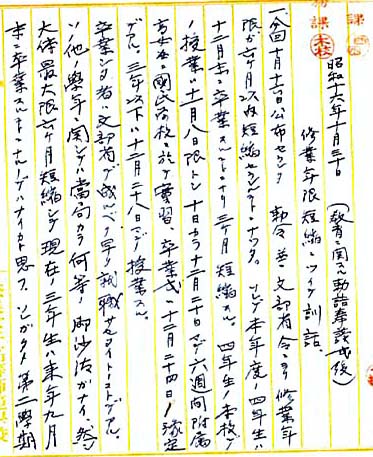 昭和十六年十月三十日　（教育ニ関スル勅語奉読式後）
修業年限短縮ニツイテ訓話
一、今回十月十六日公布セラレタ　勅令並ニ文部省令ニヨリ修業年
限ガ六ケ月以内短縮セラレルコトニナツタ。ソレデ本年度ノ四年生ハ
十二月ニ卒業スルコトニナリ三ケ月短縮スル。四年生ノ本校デ
ノ授業ハ十一月八日限トシ十日カラ十二月二十日マデ六週間附属
高女並ニ國民学校ニ於テ實習、卒業式ハ十二月二十四日ノ豫定
デアル。三年以下ハ十二月二十八日マデ授業スル。
卒業シタ者ハ文部省デ成ルベク早ク就職サセルトイフコトデアル。
ソノ他ノ學年ニ関シテハ當局カラ何等ノ御沙汰ガナイ。然シ
大体最大限六ケ月短縮シテ現在ノ三年生ハ来年九月
末ニ卒業スルコトニナルノデハナイカト思フ。ソレガタメ第二學期